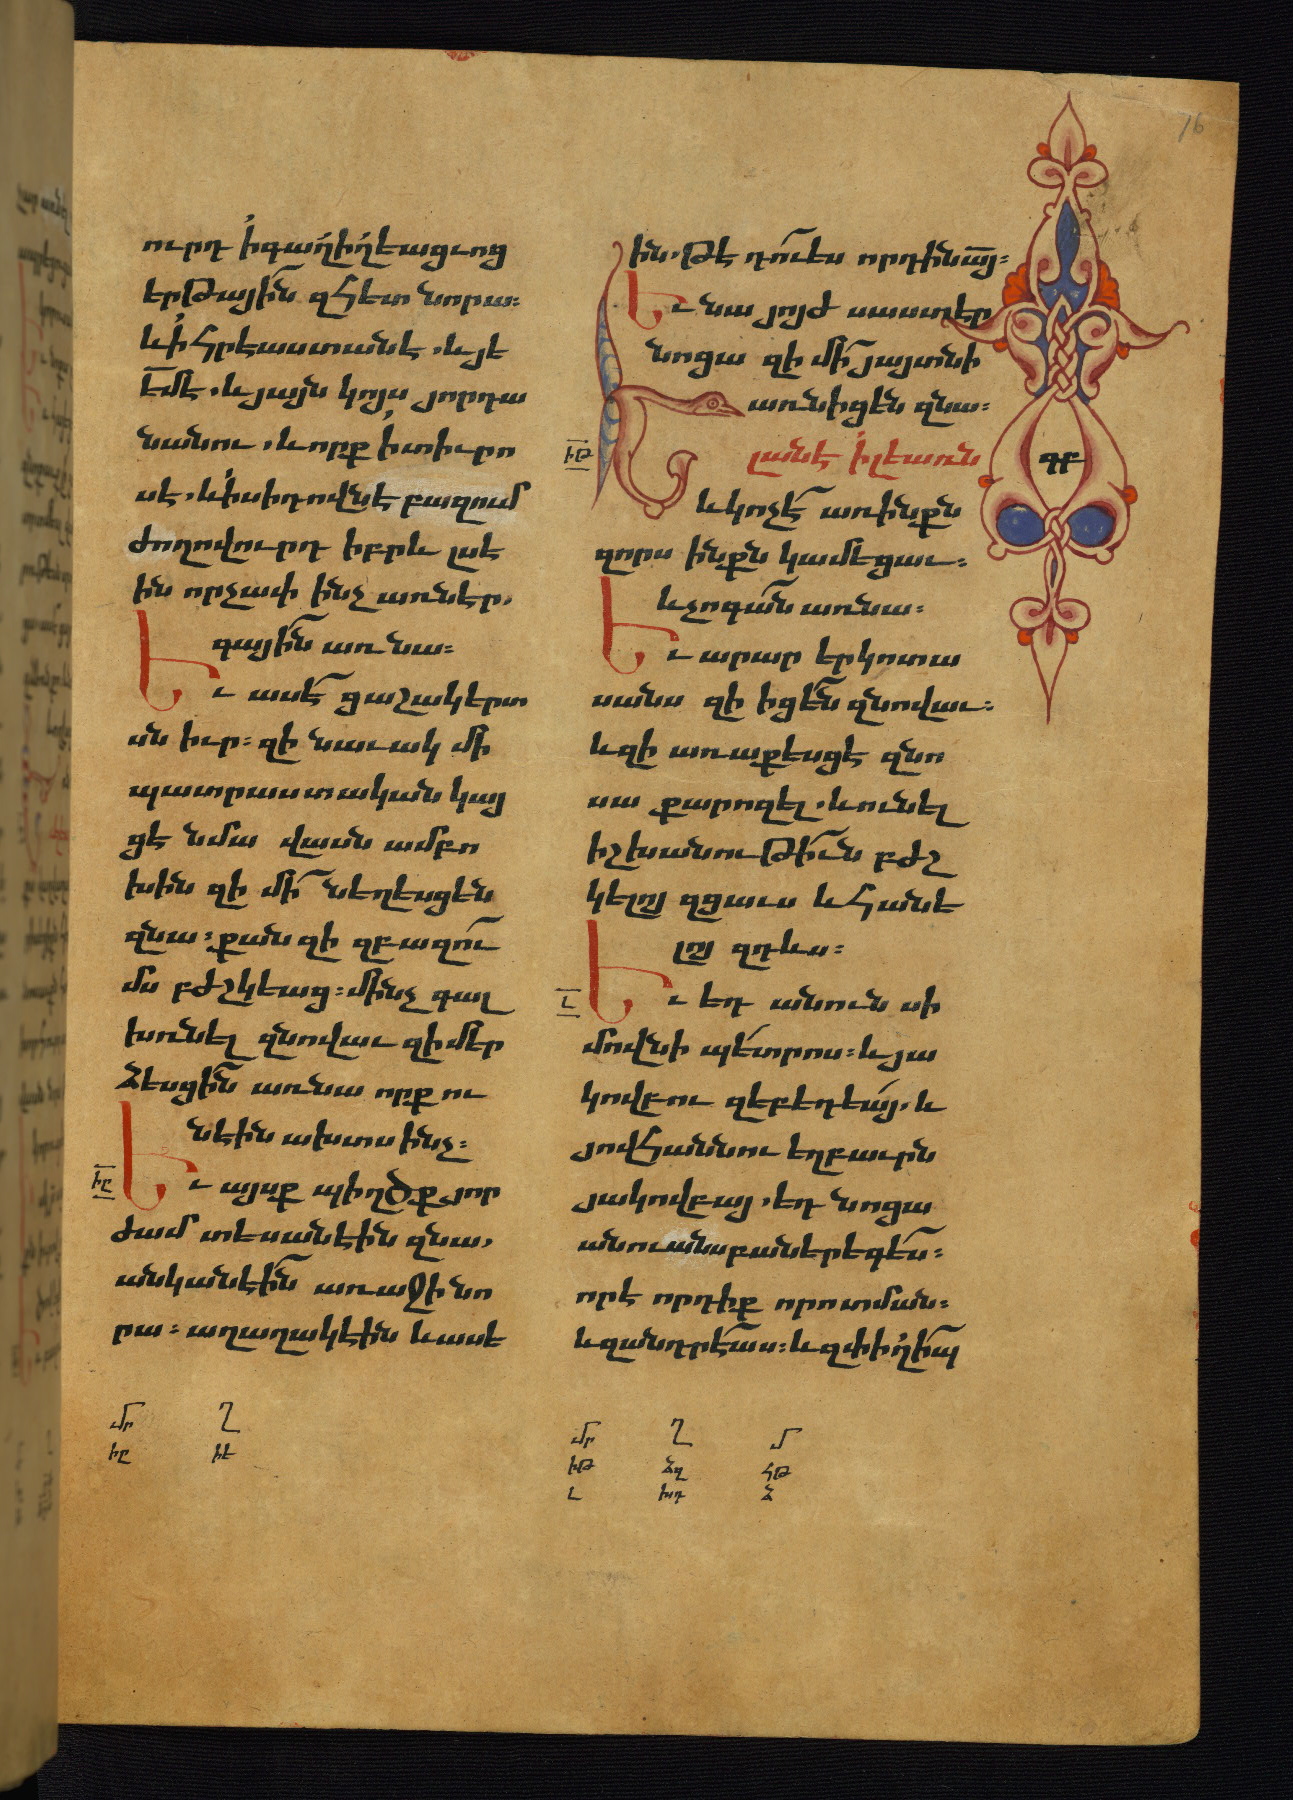 ուրդ ի գաղիղեացւոց
երթային զհետ նորա։
և ի հրէաստանէ, և յե
էմէ, և յայն կոյս յորդա
նանու, և որք ի տիւրո
սէ, և ի սիդովնէ բազում
ժողովուրդ իբրև լսէ
ին որչափ ինչ առնէր,
գային առ նա։
Եւ ասէ ցաշակերտ
սն իւր։ զի նաւակ մի
պատրաստական կայ
ցէ նմա վասն ամբո
խին զի մի նեղեսցեն
զնա։ քանզի զբազու
մս բժշկեաց։ մինչ գալ
խռնել զնովաւ զի մեր
ձեսցին առ նա որք ու
նէին ախտս ինչ։
Եւ այսք պիղծք յոր
ժամ տեսանէին զնա,
անկանէին առաջի նո
րա։ աղաղակէին և ասէ
մր Ղ
իը իէ
ին. թէ դու ես որդին այ։
Եւ նա յոյժ սաստէր
նոցա զի մի յայտնի
առնիցեն զնա։
լանէ ի լեառն
և կոչէ առ ինքն
զորս ինքն կամեցաւ։
և չոգան առ նա։
Եւ արար երկոտա
սանս զի իցեն զնովաւ։
և զի առաքեսցէ զնո
սա քարոզել, և ունել
իշխանութիւն բժշ
կելոյ զցաւս և հանե
լոյ զդևս։
Եւ եդ անուն սի
մովնի պետրոս։ և յա
կովբու զեբեդեայ, և
յովհաննու եղբաւրն
յակովբայ, եդ նոցա
անուանս բաներեգես։
որ է որդիք որոտման։
և զանդրէաս։ և զփիղիպ
իթ
իը
լ
գբ
մր Ղ Մ
իթ ձղ հթ
լ խդ ձ
76